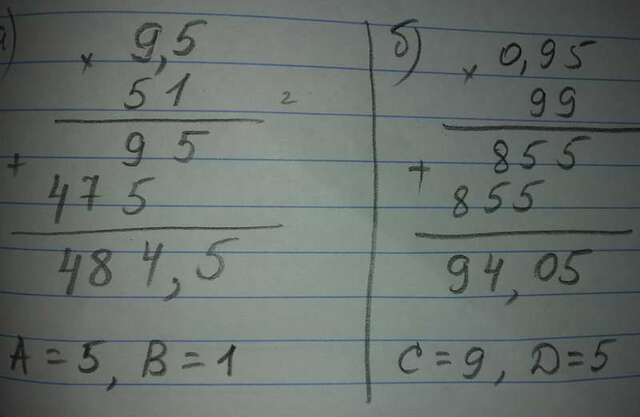 а)
× 9,5
51
95
+
475
484,5
A = 5, B = 1
б)
× 0,95
99
855
+
855
94,05
C = 9, D = 5